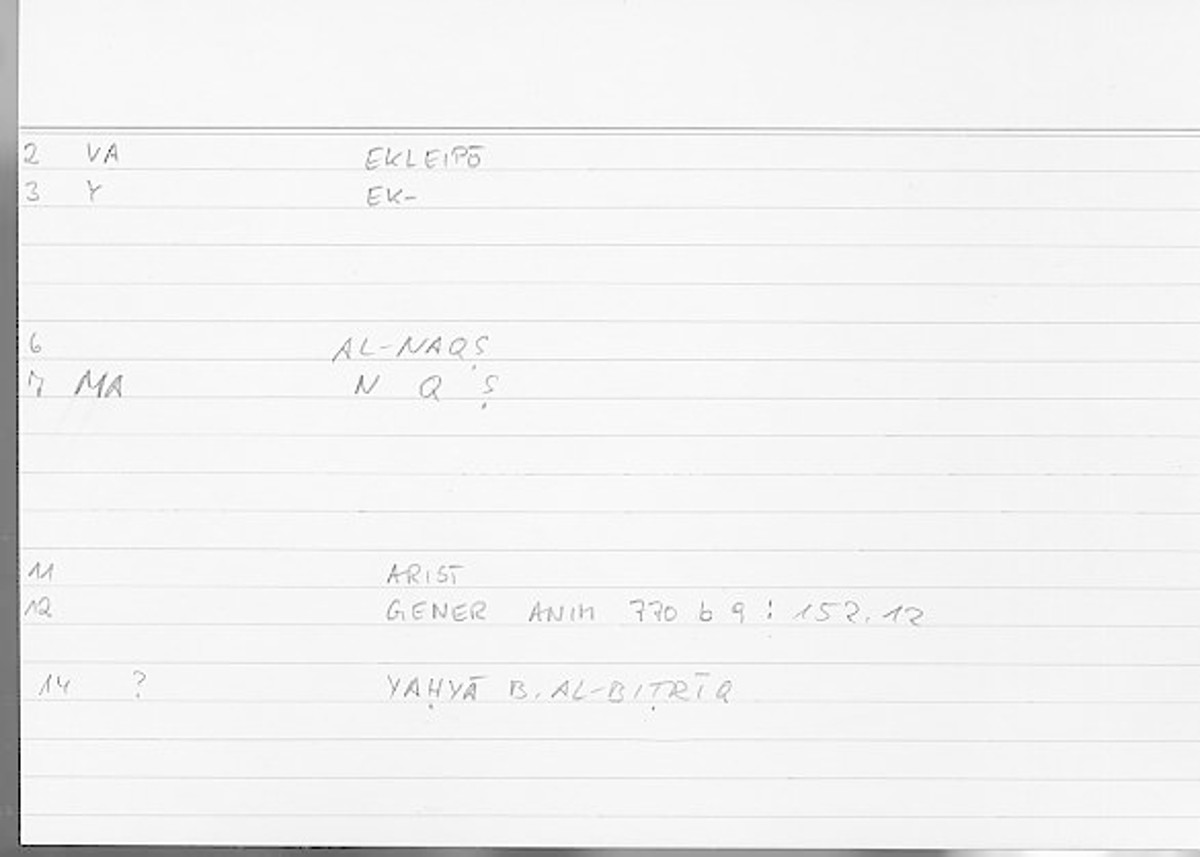 2 VA EKLEIPŌ
3 Y EK-
6 AL-NAQṢ
7 MA N Q Ṣ
11 ARIST
12 GENER ANIM 770 b 9 : 152.12
14 ? YAḤYĀ B. AL-BIṬRĪQ